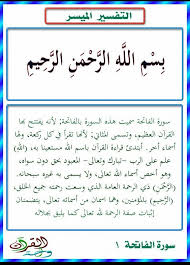 التفسير الميسر
بِسْمِ اللَّهِ الرَّحْمَنِ الرَّحِيمِ
سورة الفاتحة سميت هذه السورة بالفاتحة؛ لأنه يفتتح بها
القرآن العظيم، وتسمى المثاني؛ لأنها تقرأ في كل ركعة، ولها
أسماء أخر. أبتدئ قراءة القرآن باسم الله مستعينا به، (اللهِ)
علم على الرب -تبارك وتعالى- المعبود بحق دون سواه،
وهو أخص أسماء الله تعالى، ولا يسمى به غيره سبحانه.
(الرَّحْمَنِ) ذي الرحمة العامة الذي وسعت رحمته جميع الخلق،
(الرَّحِيمِ) بالمؤمنين، وهما اسمان من أسمائه تعالى، يتضمنان
إثبات صفة الرحمة لله تعالى كما يليق بجلاله
سورة الفاتحة ١